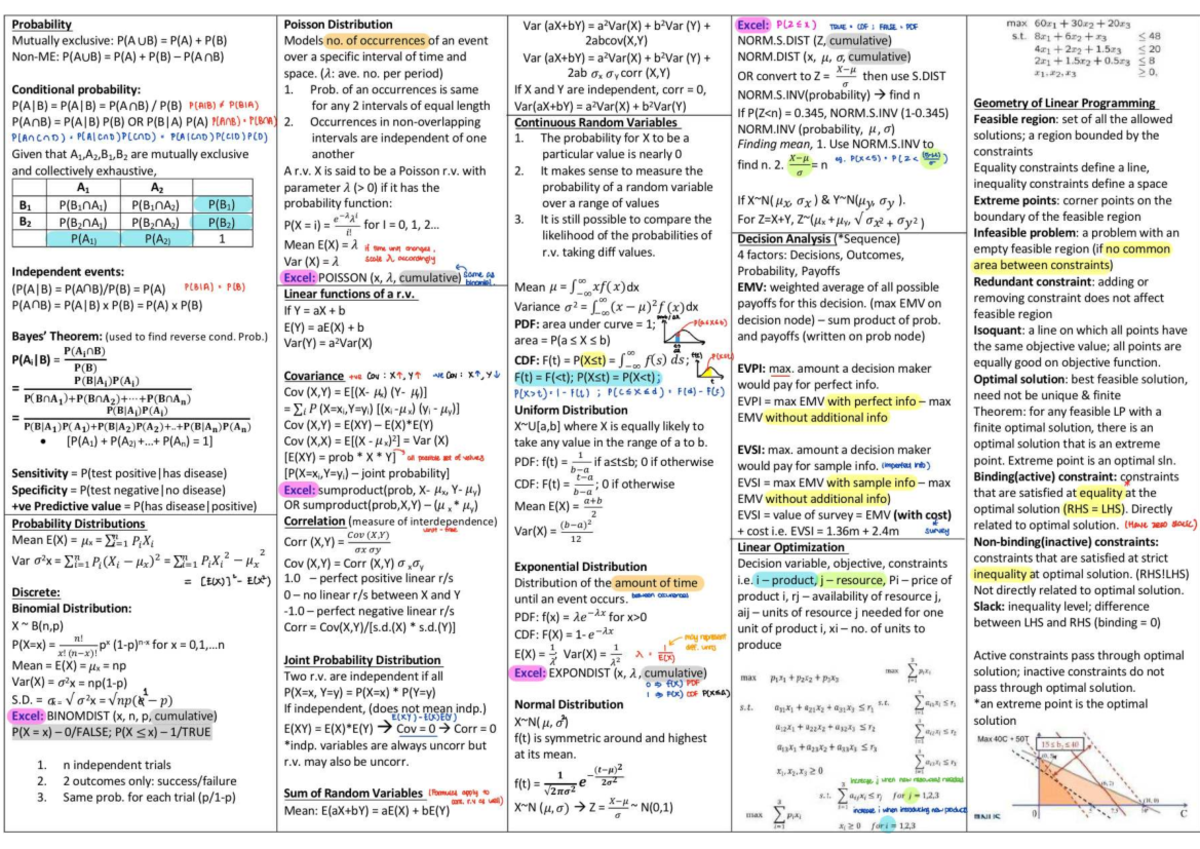 Probability
Mutually exclusive: P(A ∪B) = P(A) + P(B)
Non-ME: P(A∪B) = P(A) + P(B) – P(A∩B)
Conditional probability:
P(A|B) = P(A|B) = P(A∩B) / P(B) P(A|B) ≠ P(B|A)
P(A∩B) = P(A|B) P(B) OR P(B|A) P(A) P(A∩B) = P(B∩A)
P(A∩C∩D) = P(A|C∩D)P(C∩D) = P(A|C∩D)P(C|D)P(D)
Given that A₁,A₂,B₁,B₂ are mutually exclusive
and collectively exhaustive,
A₁ A₂
B₁ P(B₁∩A₁) P(B₁∩A₂) P(B₁)
B₂ P(B₂∩A₁) P(B₂∩A₂) P(B₂)
P(A₁) P(A₂) 1
Independent events:
(P(A|B) = P(A∩B)/P(B) = P(A) P(B|A) = P(B)
P(A∩B) = P(A|B) x P(B) = P(A) x P(B)
Bayes' Theorem: (used to find reverse cond. Prob.)
P(Aᵢ|B) = P(Aᵢ∩B) / P(B)
= P(B|Aᵢ)P(Aᵢ) / P(B∩A₁)+P(B∩A₂)+⋯+P(B∩Aₙ)
= P(B|Aᵢ)P(Aᵢ) / P(B|A₁)P(A₁)+P(B|A₂)P(A₂)+..+P(B|Aₙ)P(Aₙ)
• [P(A₁) + P(A₂)+...+ P(Aₙ) = 1]
Sensitivity = P(test positive|has disease)
Specificity = P(test negative|no disease)
+ve Predictive value = P(has disease|positive)
Probability Distributions
Mean E(X) = μₓ = Σⁿᵢ₌₁ PᵢXᵢ
Var σ²x = Σⁿᵢ₌₁ Pᵢ(Xᵢ − μₓ)² = Σⁿᵢ₌₁ PᵢXᵢ² − μₓ²
= [E(X)]² - E(X²)
Discrete:
Binomial Distribution:
X ~ B(n,p)
P(X=x) = n! / x!(n−x)! pˣ (1-p)ⁿ⁻ˣ for x = 0,1,...n
Mean = E(X) = μₓ = np
Var(X) = σ²x = np(1-p)
S.D. = σₓ = √σ²x = √np(1 − p)
Excel: BINOMDIST (x, n, p, cumulative)
P(X = x) – 0/FALSE; P(X ≤ x) – 1/TRUE
1. n independent trials
2. 2 outcomes only: success/failure
3. Same prob. for each trial (p/1-p)
Poisson Distribution
Models no. of occurrences of an event
over a specific interval of time and
space. (λ: ave. no. per period)
1. Prob. of an occurrences is same
for any 2 intervals of equal length
2. Occurrences in non-overlapping
intervals are independent of one
another
A r.v. X is said to be a Poisson r.v. with
parameter λ (> 0) if it has the
probability function:
P(X = i) = e^−λ λⁱ / i! for I = 0, 1, 2...
Mean E(X) = λ if time unit changes,
Var (X) = λ scale λ accordingly
Excel: POISSON (x, λ, cumulative) same as binomial
Linear functions of a r.v.
If Y = aX + b
E(Y) = aE(X) + b
Var(Y) = a²Var(X)
Covariance +ve Cov : X↑, Y↑ -ve Cov : X↑, Y↓
Cov (X,Y) = E[(X- μᵢ) (Y- μⱼ)]
= Σᵢ P (X=xᵢ,Y=yᵢ) [(xᵢ -μₓ) (yᵢ - μᵧ)]
Cov (X,Y) = E(XY) – E(X)*E(Y)
Cov (X,X) = E[(X - μₓ)²] = Var (X)
[E(XY) = prob * X * Y] all possible set of values
[P(X=xᵢ,Y=yᵢ) – joint probability]
Excel: sumproduct(prob, X- μₓ, Y- μᵧ)
OR sumproduct(prob,X,Y) – (μₓ * μᵧ)
Correlation (measure of interdependence)
unit-free
Corr (X,Y) = Cov (X,Y) / σx σy
Cov (X,Y) = Corr (X,Y) σₓσᵧ
1.0 – perfect positive linear r/s
0 – no linear r/s between X and Y
-1.0 – perfect negative linear r/s
Corr = Cov(X,Y)/[s.d.(X) * s.d.(Y)]
Joint Probability Distribution
Two r.v. are independent if all
P(X=x, Y=y) = P(X=x) * P(Y=y)
If independent, (does not mean indp.)
E(XY) - E(X)E(Y)
E(XY) = E(X)*E(Y) → Cov = 0 → Corr = 0
*indp. variables are always uncorr but
r.v. may also be uncorr.
Sum of Random Variables (Formulas apply to cont. r.v as well)
Mean: E(aX+bY) = aE(X) + bE(Y)
Var (aX+bY) = a²Var(X) + b²Var (Y) +
2abcov(X,Y)
Var (aX+bY) = a²Var(X) + b²Var (Y) +
2ab σₓ σᵧcorr (X,Y)
If X and Y are independent, corr = 0,
Var(aX+bY) = a²Var(X) + b²Var(Y)
Continuous Random Variables
1. The probability for X to be a
particular value is nearly 0
2. It makes sense to measure the
probability of a random variable
over a range of values
3. It is still possible to compare the
likelihood of the probabilities of
r.v. taking diff values.
Mean μ = ∫^∞_−∞ xf(x)dx
Variance σ² = ∫^∞_−∞ (x − μ)²f(x)dx
PDF: area under curve = 1; P(a≤X≤b)
area = P(a ≤ X ≤ b)
CDF: F(t) = P(X≤t) = ∫^∞_−∞ f(s) ds; f(x) P(X≤t)
F(t) = F(<t); P(X≤t) = P(X<t);
P(X>t) = 1 - F(t) ; P(c≤X≤d) = F(d) - F(c)
Uniform Distribution
X~U[a,b] where X is equally likely to
take any value in the range of a to b.
PDF: f(t) = 1 / b−a if a≤t≤b; 0 if otherwise
CDF: F(t) = t−a / b−a; 0 if otherwise
Mean E(X) = a+b / 2
Var(X) = (b−a)² / 12
Exponential Distribution
Distribution of the amount of time
until an event occurs. between occurrences
PDF: f(x) = λe^−λx for x>0
CDF: F(X) = 1- e^−λx
may represent diff. units
E(X) = 1/λ, Var(X) = 1/λ² λ = 1/E(X)
Excel: EXPONDIST (x, λ, cumulative)
0 ⇒ f(X) PDF
1 ⇒ F(X) CDF P(X≤x)
Normal Distribution
X~N(μ, σ²)
f(t) is symmetric around and highest
at its mean.
f(t) = 1/√2πσ² e^−(t−μ)²/2σ²
X~N (μ, σ) → Z = X−μ / σ ~ N(0,1)
Excel: P(Z≤x) TRUE = CDF ; FALSE = PDF
NORM.S.DIST (Z, cumulative)
NORM.DIST (x, μ, σ, cumulative)
OR convert to Z = X−μ / σ then use S.DIST
NORM.S.INV(probability) → find n
If P(Z<n) = 0.345, NORM.S.INV (1-0.345)
NORM.INV (probability, μ, σ)
Finding mean, 1. Use NORM.S.INV to
find n. 2. X−μ / σ = n eg. P(X<5) = P(Z < (5-μ)/σ)
If X~N(μₓ, σₓ) & Y~N(μᵧ, σᵧ).
For Z=X+Y, Z~(μₓ+μᵧ, √σₓ² + σᵧ²)
Decision Analysis (*Sequence)
4 factors: Decisions, Outcomes,
Probability, Payoffs
EMV: weighted average of all possible
payoffs for this decision. (max EMV on
decision node) – sum product of prob.
and payoffs (written on prob node)
EVPI: max. amount a decision maker
would pay for perfect info.
EVPI = max EMV with perfect info – max
EMV without additional info
EVSI: max. amount a decision maker
would pay for sample info. (imperfect info)
EVSI = max EMV with sample info – max
EMV without additional info)
EVSI = value of survey = EMV (with cost)
+ cost i.e. EVSI = 1.36m + 2.4m survey
Linear Optimization
Decision variable, objective, constraints
i.e. i – product, j – resource, Pi – price of
product i, rj – availability of resource j,
aij – units of resource j needed for one
unit of product i, xi – no. of units to
produce
max p₁x₁ + p₂x₂ + p₃x₃
s.t. a₁₁x₁ + a₂₁x₂ + a₃₁x₃ ≤ r₁
a₁₂x₁ + a₂₂x₂ + a₃₂x₃ ≤ r₂
a₁₃x₁ + a₂₃x₂ + a₃₃x₃ ≤ r₃
x₁, x₂, x₃ ≥ 0
max Σ³ᵢ₌₁ pᵢxᵢ
s.t. Σ³ᵢ₌₁ aᵢ₁xᵢ ≤ r₁
Σ³ᵢ₌₁ aᵢ₂xᵢ ≤ r₂
Σ³ᵢ₌₁ aᵢ₃xᵢ ≤ r₃
increase j when new resource needed
s.t. Σ³ᵢ₌₁ aᵢⱼxᵢ ≤ rⱼ for j = 1,2,3
increase i when introducing new product
max Σ³ᵢ₌₁ pᵢxᵢ
xᵢ ≥ 0 for i = 1,2,3
max 60x₁ + 30x₂ + 20x₃
s.t. 8x₁ + 6x₂ + x₃ ≤ 48
4x₁ + 2x₂ + 1.5x₃ ≤ 20
2x₁ + 1.5x₂ + 0.5x₃ ≤ 8
x₁, x₂, x₃ ≥ 0.
Geometry of Linear Programming
Feasible region: set of all the allowed
solutions; a region bounded by the
constraints
Equality constraints define a line,
inequality constraints define a space
Extreme points: corner points on the
boundary of the feasible region
Infeasible problem: a problem with an
empty feasible region (if no common
area between constraints)
Redundant constraint: adding or
removing constraint does not affect
feasible region
Isoquant: a line on which all points have
the same objective value; all points are
equally good on objective function.
Optimal solution: best feasible solution,
need not be unique & finite
Theorem: for any feasible LP with a
finite optimal solution, there is an
optimal solution that is an extreme
point. Extreme point is an optimal sln.
Binding(active) constraint: constraints
that are satisfied at equality at the
optimal solution (RHS = LHS). Directly
related to optimal solution. (Have zero slack)
Non-binding(inactive) constraints:
constraints that are satisfied at strict
inequality at optimal solution. (RHS!LHS)
Not directly related to optimal solution.
Slack: inequality level; difference
between LHS and RHS (binding = 0)
Active constraints pass through optimal
solution; inactive constraints do not
pass through optimal solution.
*an extreme point is the optimal
solution
Max 40C + 50T
15 ≤ b, ≤ 40
0
C